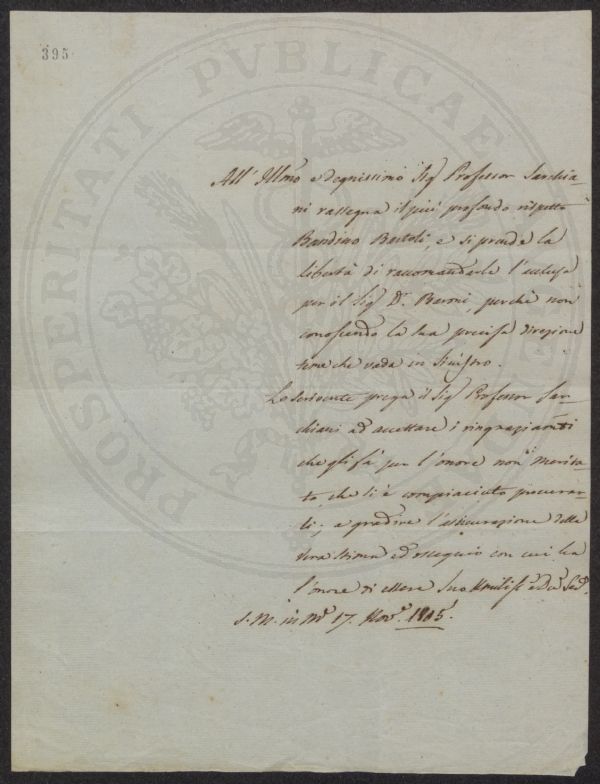 395
PROSPERITATI PVBLICAE
All' Illmo e degnissimo Sig Professor Sarchia-
ni rassegna il più profondo rispetto
Bandino Bartoli, e si prende la
libertà di raccomandarle l'acclusa
per il Sig Dr. Baroni, perchè non
conoscendo la sua precisa direzione
teme che vada in sinistro.
Lo scrivente prega il Sig Professor Sar-
chiani ad accettare i ringraziamti
che gli fà per l'onore non merita-
to che si è compiaciuto procurar-
li; e gradire l'assicurazione della
vera stima ed ossequio con cui ha
l'onore di essere Suo
S. M. in 17. Nove. 1805.